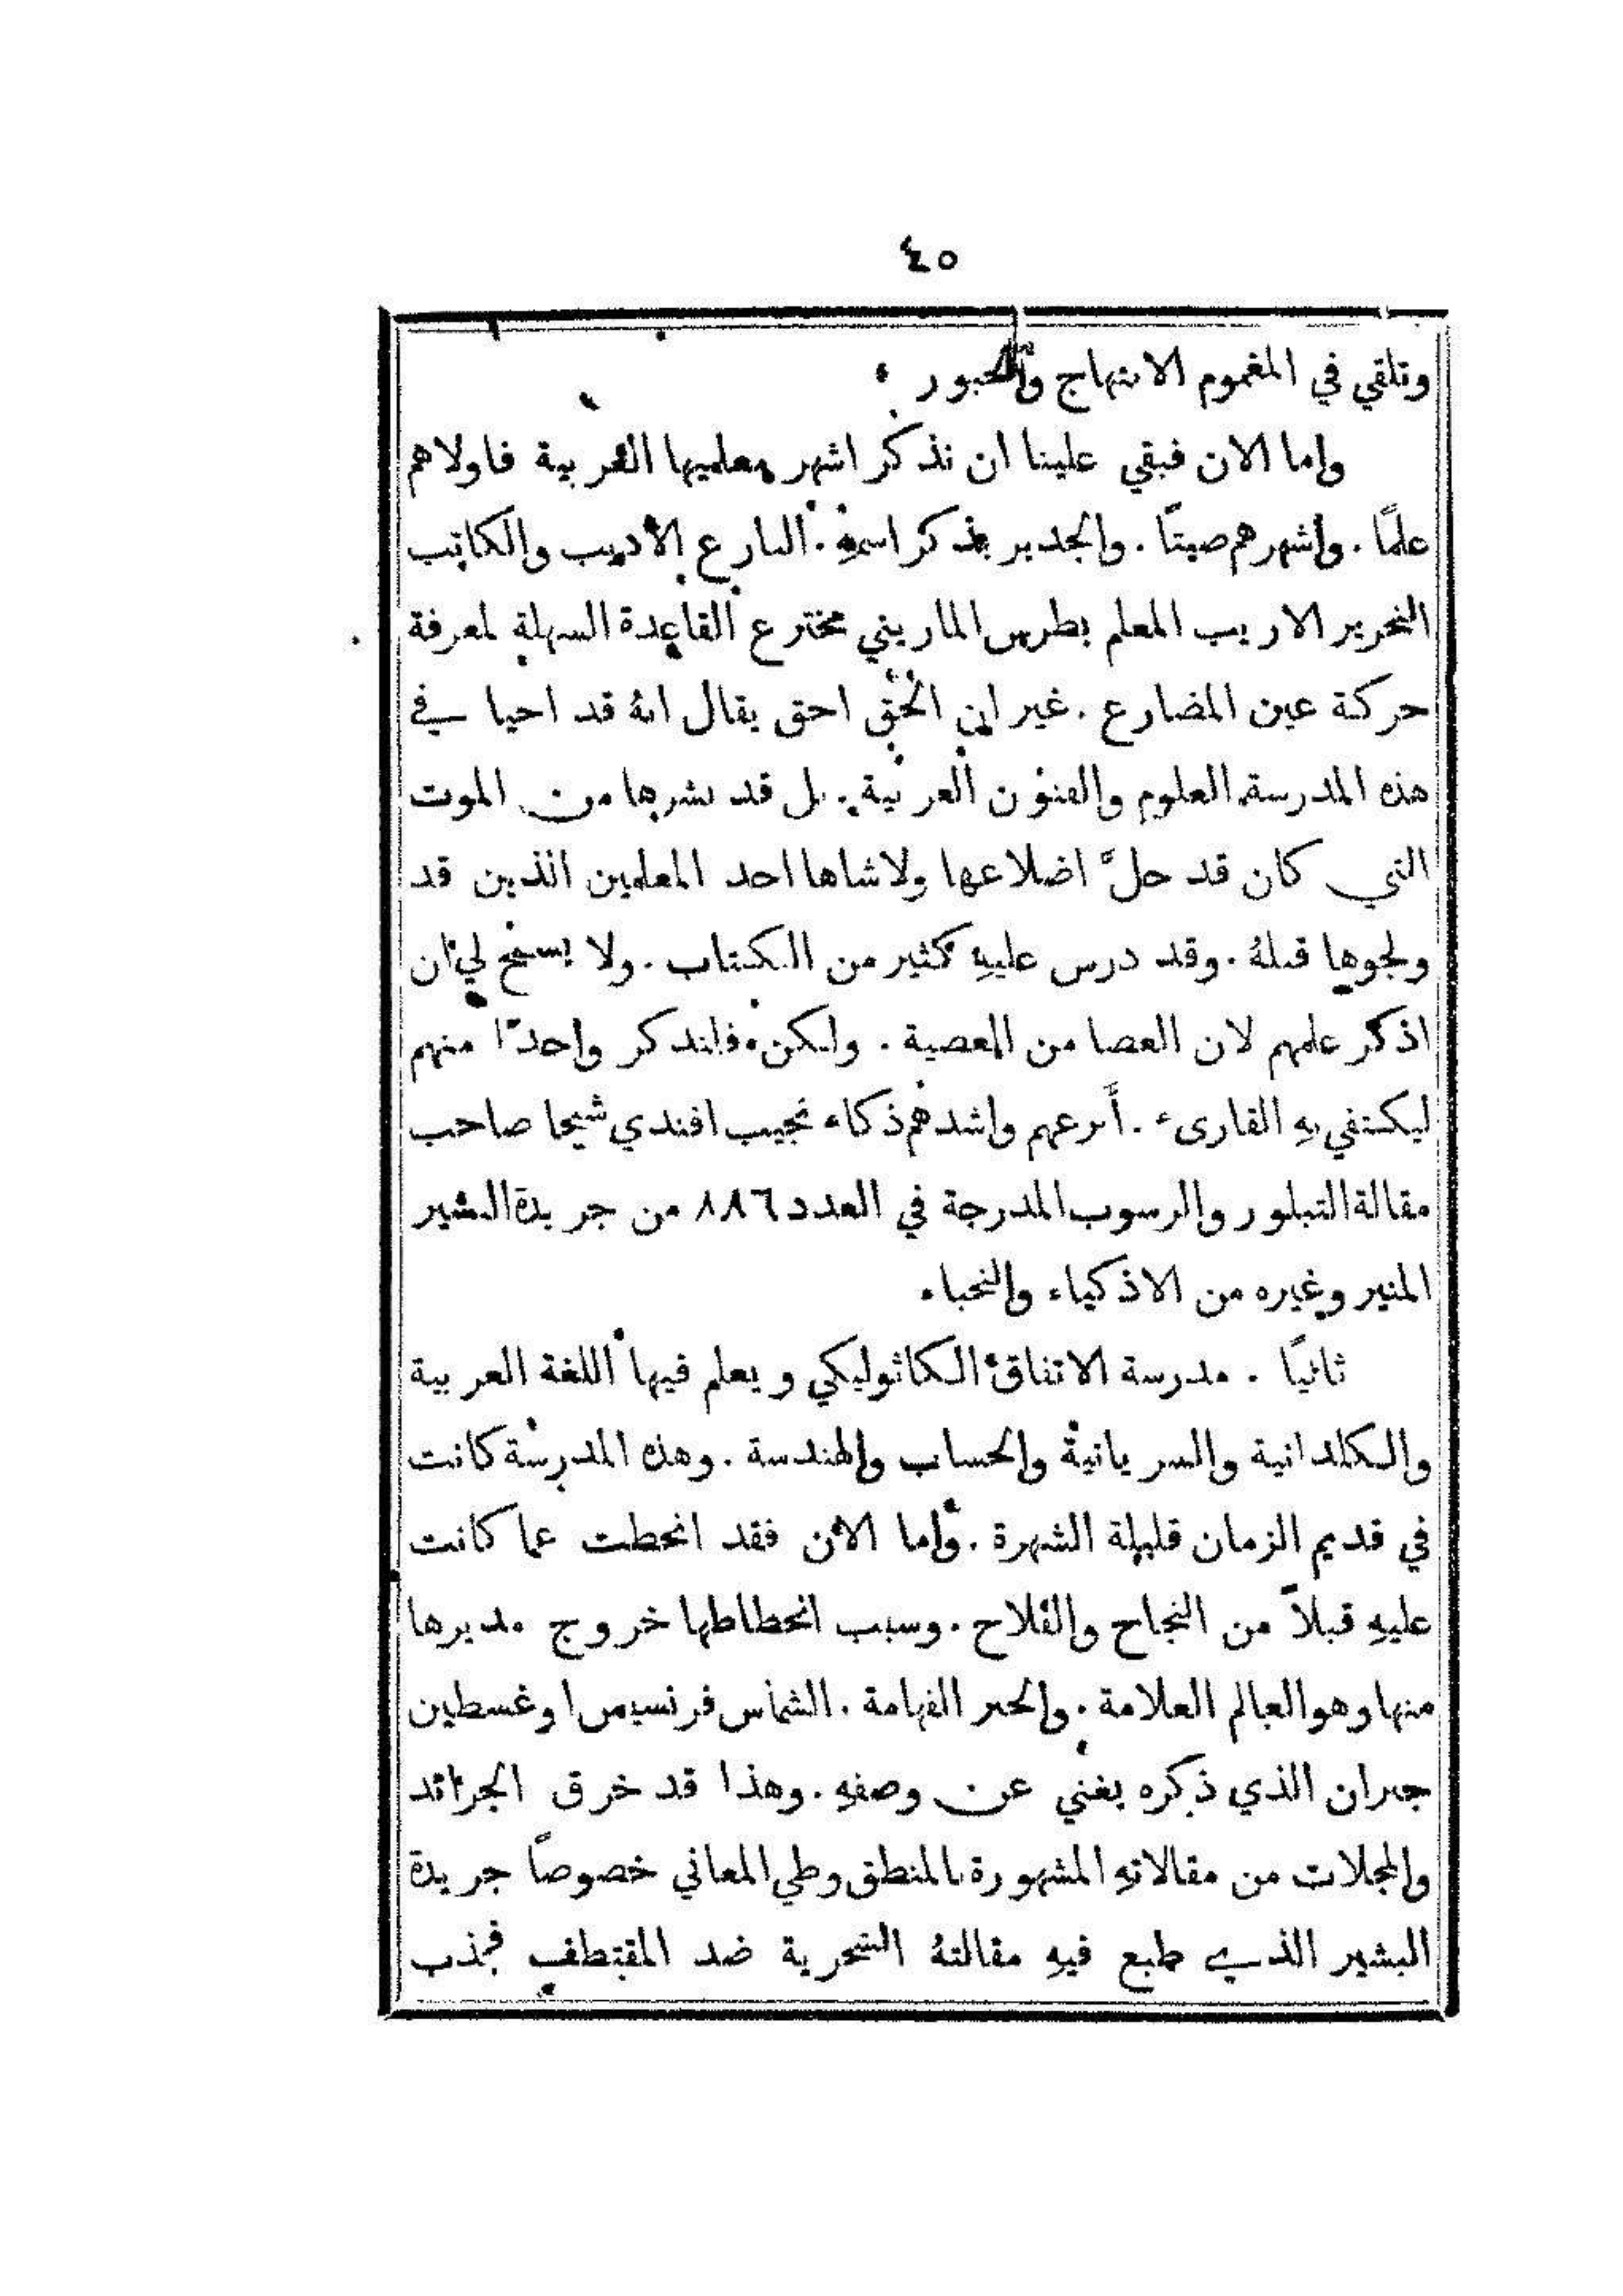 ٤٥
وتلقي في المغموم الابتهاج والحبور .
واما الان فبقي علينا ان نذكر اشهر معلميها العربية فاولاهم
علمًا . واشهرهم صيتًا . والجدير بذكر اسمهِ . البارع الأديب والكاتب
النحرير الاريب المعلم بطرس الماريني مخترع القاعدة السهلة لمعرفة
حركة عين المضارع . غير ان الحق احق يقال انهُ قد احيا في
هذه المدرسة العلوم والفنون العربية . بل قد نشرها من الموت
التي كان قد حلَّ اضلاعها ولاشاها احد المعلمين الذين قد
ولجوها قبلهُ . وقد درس عليهِ كثير من الكتاب . ولا يسمح لي ان
اذكر علمهم لان العصا من العصية . ولكن فلنذكر واحدًا منهم
ليكتفي بهِ القارىء . أبرعهم واشدهم ذكاء نجيب افندي شيحا صاحب
مقالة التبلور والرسوب المدرجة في العدد ٨٨٦ من جريدة البشير
المنير وغيره من الاذكياء والنجباء
ثانيًا . مدرسة الاتفاق الكاثوليكي ويعلم فيها اللغة العربية
والكلدانية والسريانية والحساب والهندسة . وهذه المدرسة كانت
في قديم الزمان قليلة الشهرة . واما الان فقد انحطت عما كانت
عليهِ قبلاً من النجاح والفلاح . وسبب انحطاطها خروج مديرها
منها وهو العالم العلامة . والحبر الفهامة . الشماس فرنسيس اوغسطين
جبران الذي ذكره يغني عن وصفهِ . وهذا قد خرق الجرائد
والمجلات من مقالاتهِ المشهورة بالمنطق وطي المعاني خصوصًا جريدة
البشير الذي طبع فيهِ مقالتهُ السحرية ضد المقتطف فجذب